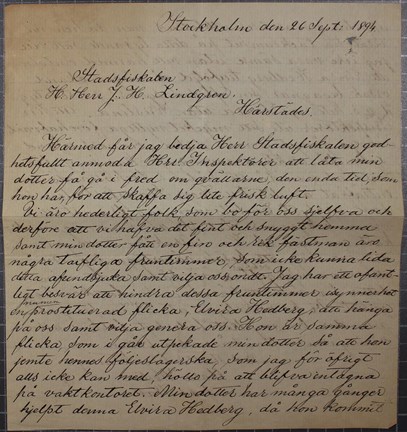 Stockholm den 26 Sept: 1894
Stadsfiskalen
H. Herr J. H. Lindgren.
Härstädes.
Härmed får jag bedja Herr Stadsfiskalen god
hetsfullt anmoda Hrr Inspektörer att låta min
dotter få gå i fred om qvällarne, den enda tid, som
hon har, för att skaffa sig lite frisk luft.
Vi äro hederligt folk som bo för oss sjelfva och
derföre att vi hafva det fint och snyggt hemma
samt min dotter fått en fin och rik fästman äro
några tarfliga fruntimmer, som icke kunna lida
detta afundsjuka samt vilja oss ondt. Jag har ett ofant-
ligt besvär att hindra dessa fruntimmer isynnerhet
en prostituerad flicka, Elvira Hedberg, att hänga
på oss samt vilja genera oss. Hon är samma
flicka som i går utpekade min dotter så att hon
jemte hennes följeslagerska, som jag för öfrigt
alls icke kan med, hölls på att blifva intagna
på vaktkontoret. Min dotter har många gånger
hjelpt denna Elvira Hedberg, då hon kommit